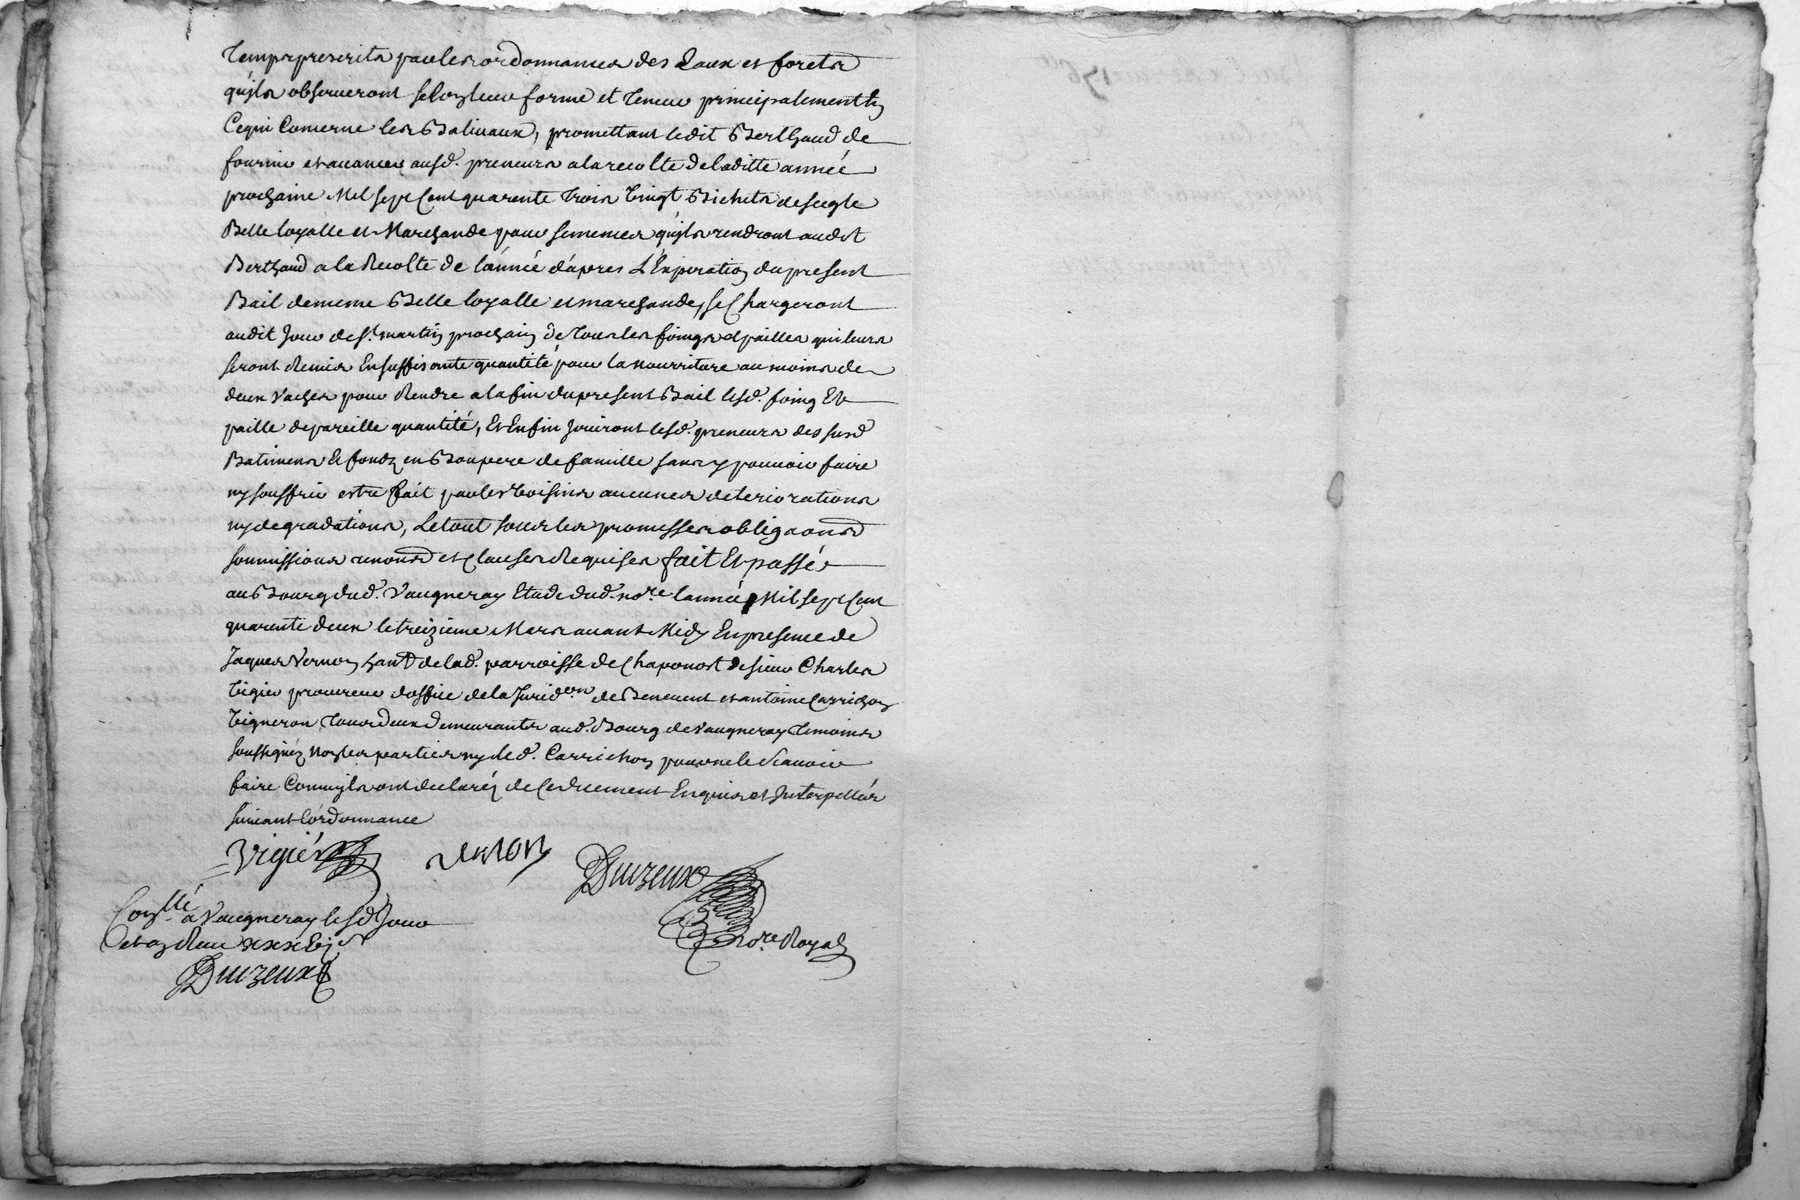 Temps prescrits par les ordonnances des Eaux et forets
qu'jls observeront selon leur forme et teneur principalement En
Cequi Concerne les Balivaux, promettant ledit Berthaud de
fournir et avancer ausd. preneurs a la recolte de laditte année
prochaine Mil sept Cent quarente trois vingt Bichets de seegle
Belle loyalle et Marchande pour semences qu'jls rendront audit
Berthaud a la Recolte de l'année d'apres L'Expiration du present
Bail de meme Belle loyalle et marchande, se Chargeront
audit Jour de st. martin prochain de tous les foings et pailles qui leurs
seront Remis En suffisante quantité pour la nourriture au moins de
deux vaches pour Rendre a la fin du present Bail lesd. foing Et
paille de pareille quantité, Et Enfin Jouiront lesd. preneurs des susd.
Batiments Et fondz en Bon pere de famille sans y pouvoir faire
ny souffrir estre fait par les voisins aucunes deteriorations
ny degradations, Le tout sous les promesses obligaons
soumissions renons et Clauses Requises fait Et passé
au Bourg dud. Vaugneray Etude dud. nore. l'année Mil sept Cent
quarente deux le treizieme Mars avant Midy En presence de
Jaques Vernon hant. de lad. parroisse de Chaponost de sieur Charles
Vigier procureur d'office de la Juridon. de Benevent et antoine Carrichon
Vigneron tous deux demeurants aud. Bourg de Vaugneray temoins
soussignéz Non les parties ny led. Carrichon pour ne le sçavoir
faire Comm'jls ont declaréz de Ce duement Enquis et Interpellés
suivant l'ordonnance
Vigier
nore. Royal
a Vaugneray lesd. Jour